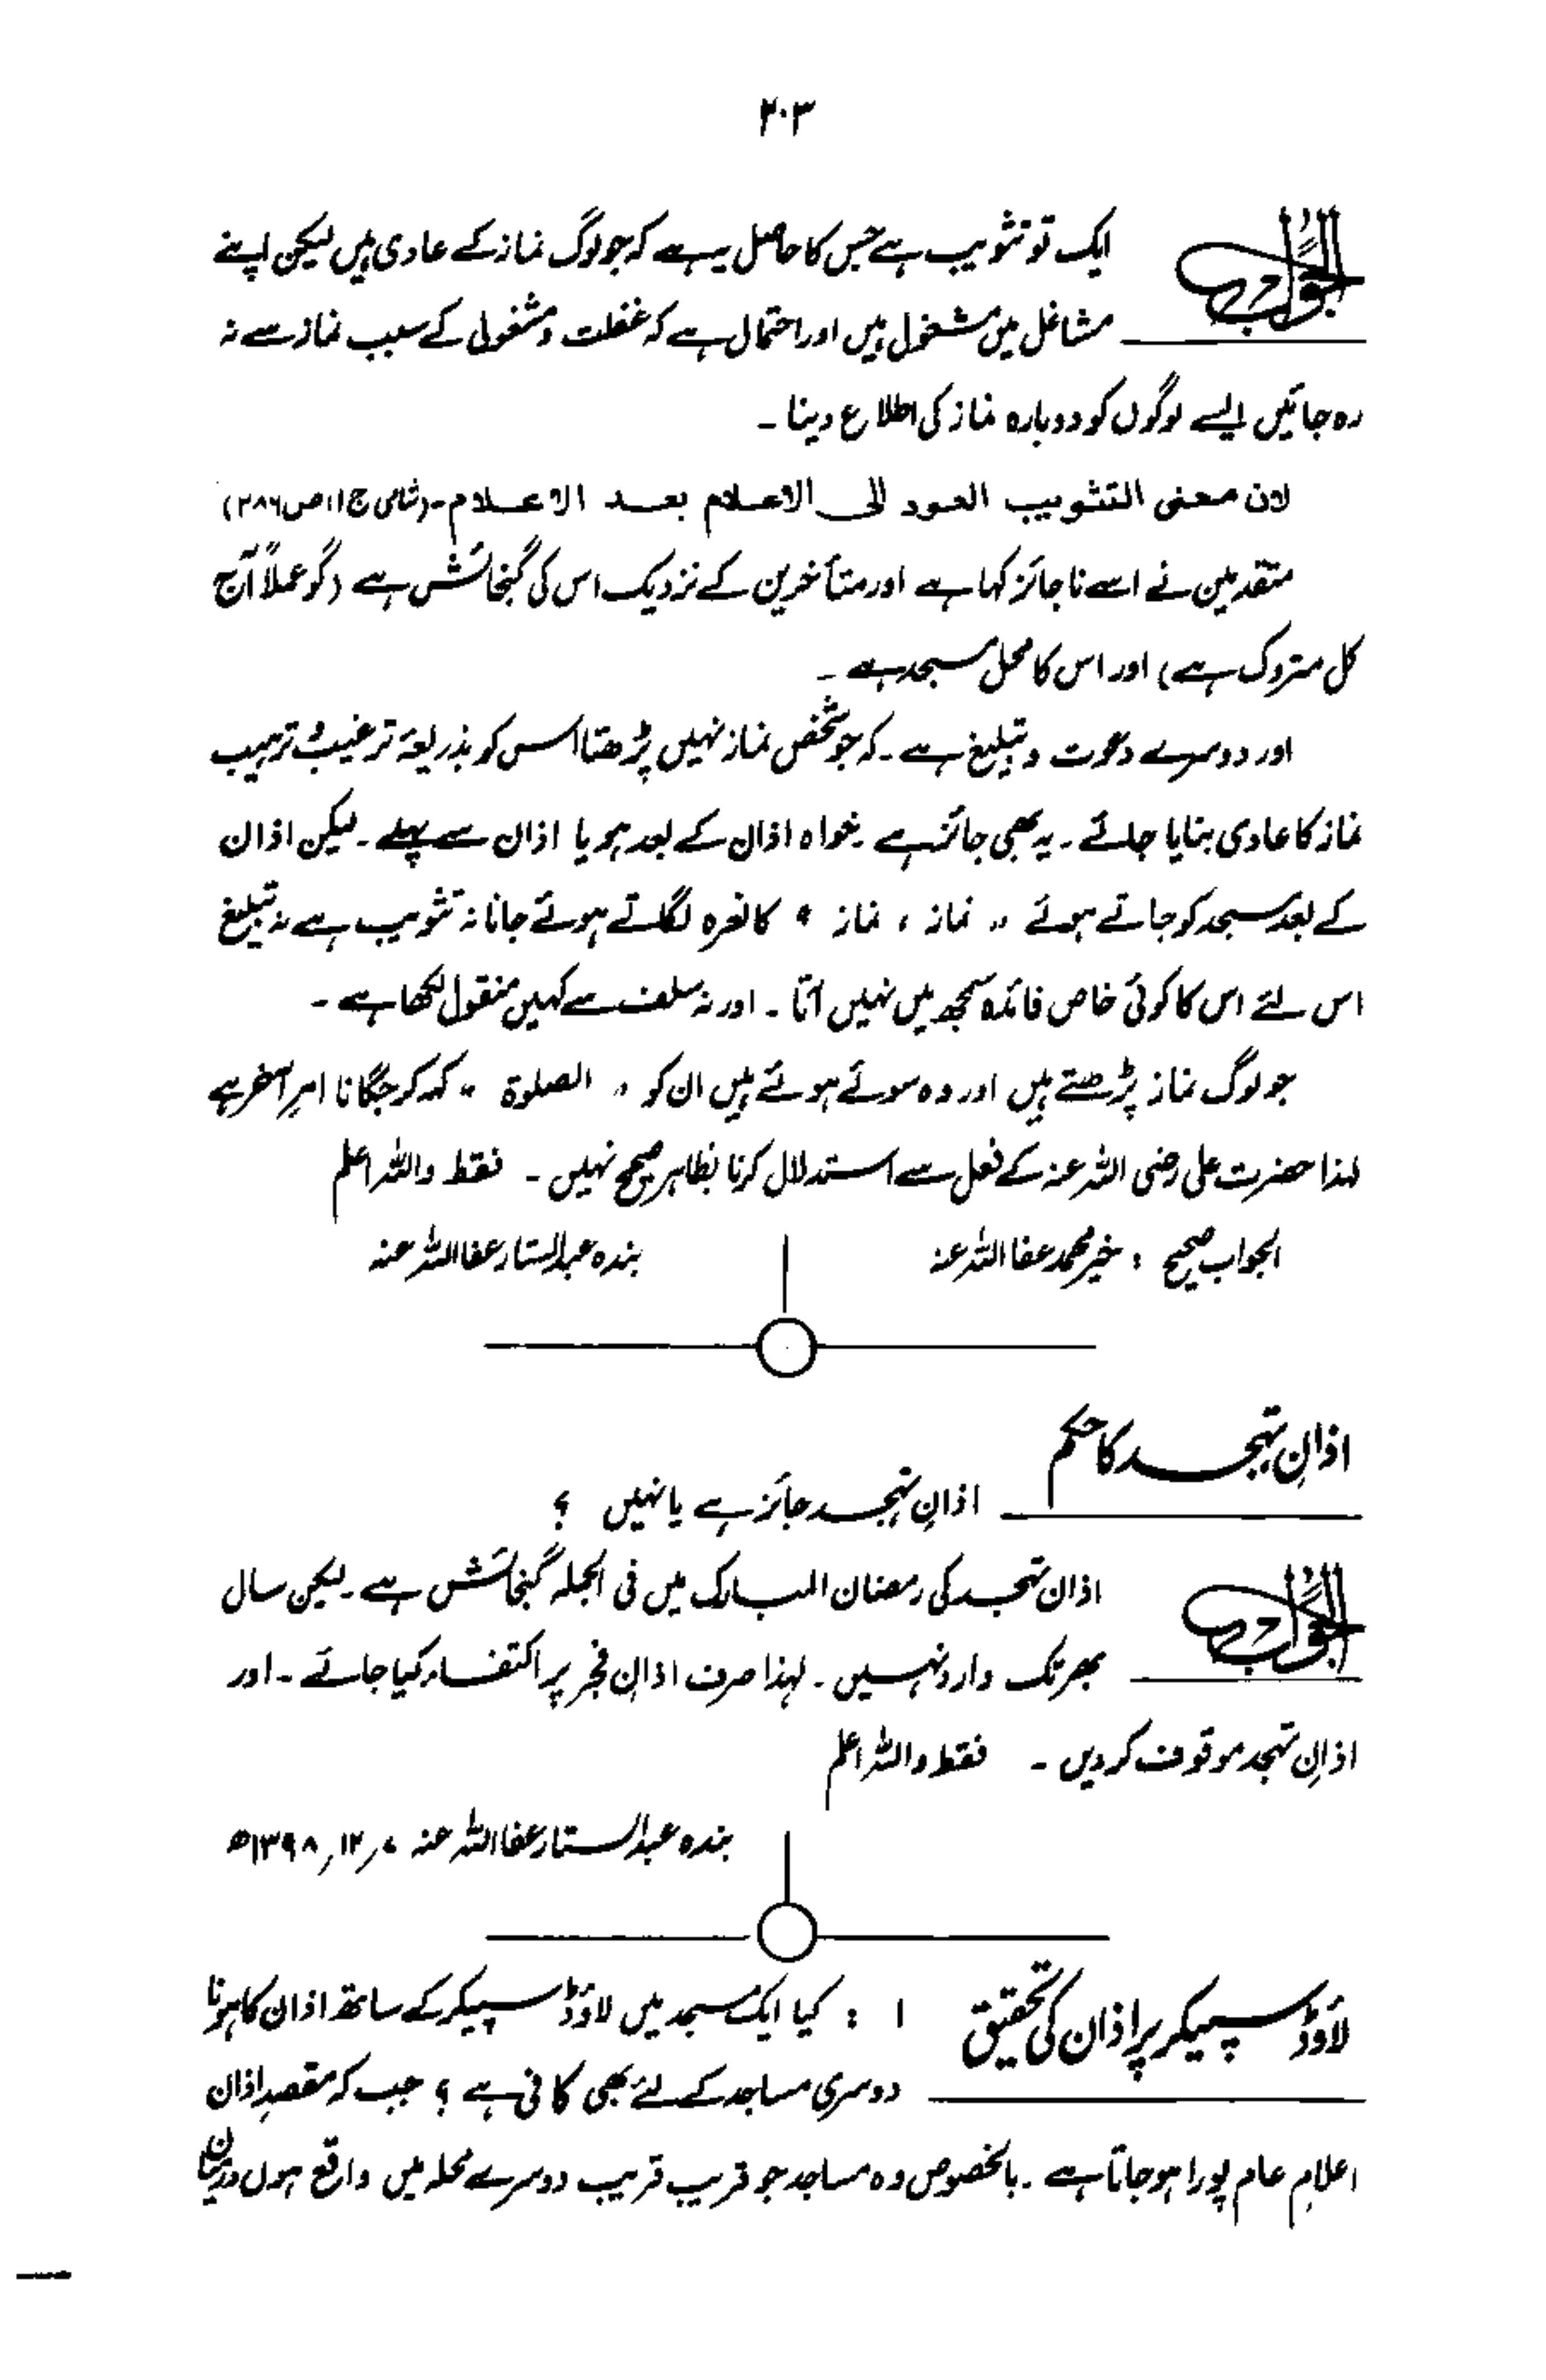 ۲۰۳
الجواب ایک تو تثویب ہے جس کا حاصل یہ ہے کہ جو لوگ نماز کے عادی ہیں لیکن اپنے
مشاغل میں مشغول ہیں اور احتمال ہے کہ غفلت و مشغولی کے سبب نماز سے نہ
رہ جائیں ایسے لوگوں کو دوبارہ نماز کی اطلاع دینا ۔
لان معنی التثویب العود الی الاعلام بعد الاعلام ۔ (شامی ج۱، ص۲۸۶)
متقدمین نے اسے ناجائز کہا ہے اور متأخرین کے نزدیک اس کی گنجائش ہے (گو عملاً آج
کل متروک ہے) اور اس کا محل مسجد ہے ۔
اور دوسرے دعوت و تبلیغ ہے ۔ کہ جو شخص نماز نہیں پڑھتا اس کو بذریعۂ ترغیب و ترہیب
نماز کا عادی بنایا جائے ۔ یہ بھی جائز ہے خواہ اذان کے بعد ہو یا اذان سے پہلے ۔ لیکن اذان
کے بعد مسجد کو جاتے ہوئے " نماز ، نماز " کا نعرہ لگاتے ہوئے جانا نہ تثویب ہے نہ تبلیغ
اس لئے اس کا کوئی خاص فائدہ سمجھ میں نہیں آتا ۔ اور نہ سلف سے کہیں منقول لکھا ہے ۔
جو لوگ نماز پڑھتے ہیں اور وہ سوئے ہوئے ہیں ان کو " الصلوۃ " کہہ کر جگانا امرِ آخر ہے
لہذا حضرت علی رضی اللہ عنہ کے فعل سے استدلال کرنا بظاہر صحیح نہیں ۔ فقط واللہ اعلم
الجواب صحیح : خیر محمد عفا اللہ عنہ بندہ عبدالستار عفا اللہ عنہ
اذانِ تہجد کا حکم
اذانِ تہجد جائز ہے یا نہیں ؟
الجواب اذان تہجد کی رمضان المبارک میں فی الجملہ گنجائش ہے ۔ لیکن سال
بھر تک وارد نہیں ۔ لہذا صرف اذانِ فجر پر اکتفاء کیا جائے ۔ اور
اذانِ تہجد موقوف کر دیں ۔ فقط واللہ اعلم
بندہ عبدالستار عفا اللہ عنہ ۷؍۱۲؍۱۳۹۸ھ
لاؤڈ سپیکر پر اذان کی تحقیق ۱ : کیا ایک مسجد میں لاؤڈ سپیکر کے ساتھ اذان کا ہونا
دوسری مساجد کے لئے بھی کافی ہے ؟ جب کہ مقصدِ اذان
اعلامِ عام پورا ہو جاتا ہے ۔ بالخصوص وہ مساجد جو قریب قریب دوسرے محلہ میں واقع ہوں درمیان